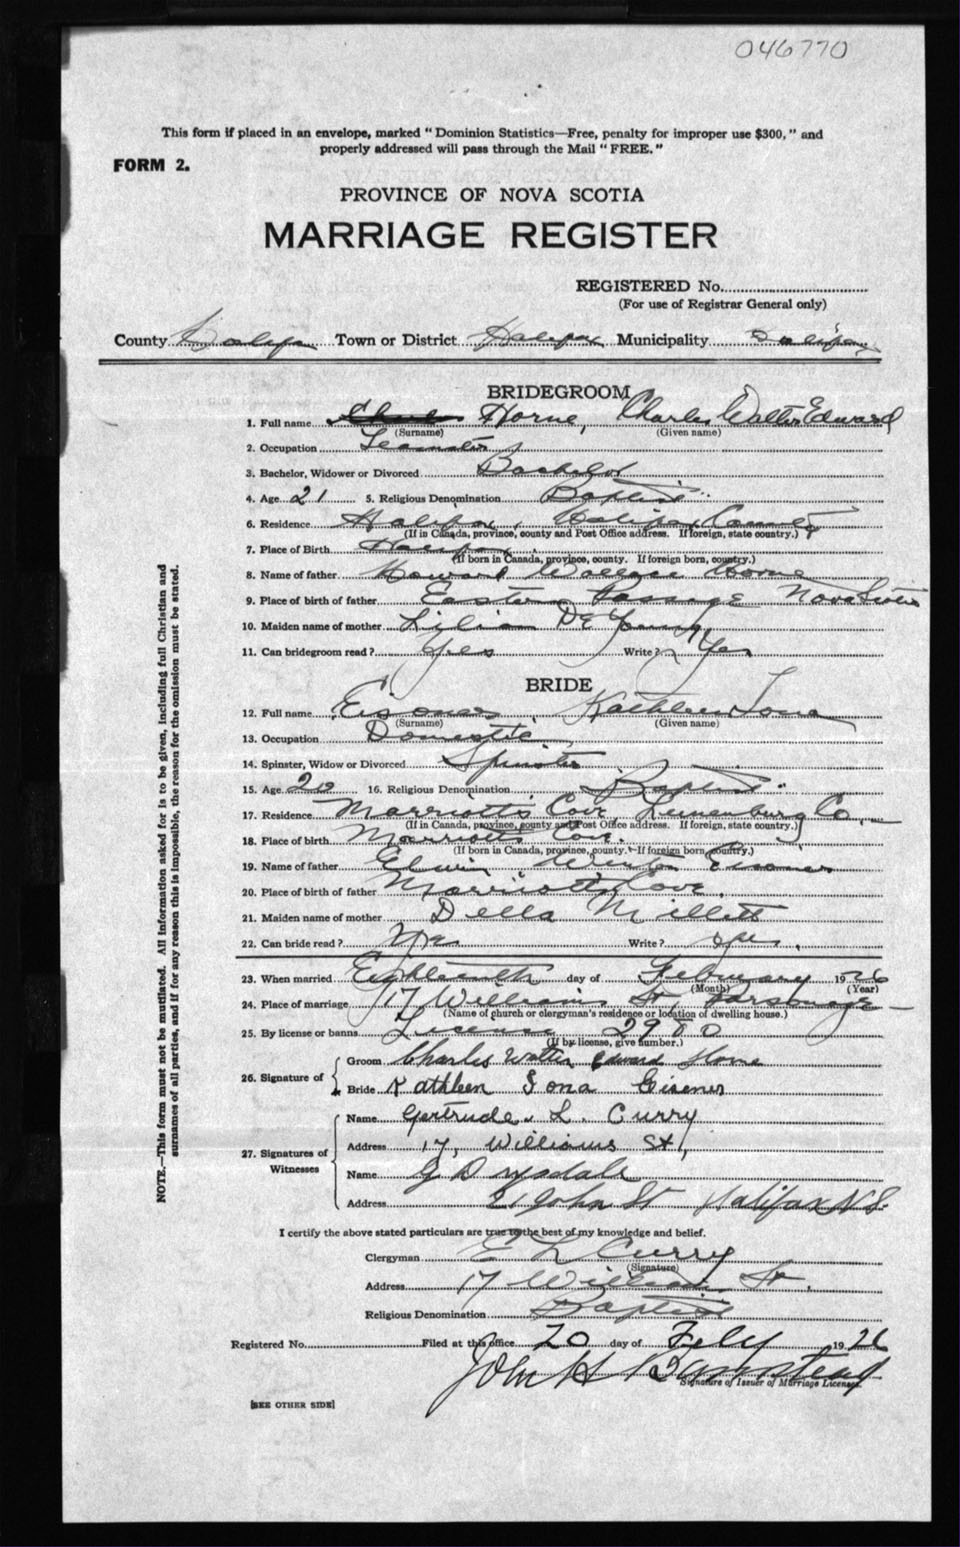 046770
This form if placed in an envelope, marked "Dominion Statistics—Free, penalty for improper use $300," and
properly addressed will pass through the Mail "FREE."
FORM 2.
PROVINCE OF NOVA SCOTIA
MARRIAGE REGISTER
REGISTERED No.
(For use of Registrar General only)
County Halifax Town or District Halifax Municipality Halifax
BRIDEGROOM
1. Full name Horne, Charles Walter Edward
(Surname) (Given name)
2. Occupation Teamster
3. Bachelor, Widower or Divorced Bachelor
4. Age 21 5. Religious Denomination Baptist
6. Residence Halifax, Halifax County
(If in Canada, province, county and Post Office address. If foreign, state country.)
7. Place of Birth Halifax
(If born in Canada, province, county. If foreign born, country.)
8. Name of father Howard Wallace Horne
9. Place of birth of father Eastern Passage Nova Scotia
10. Maiden name of mother Lilian De Young
11. Can bridegroom read? Yes Write? Yes
BRIDE
12. Full name Eisener, Kathleen Iona
(Surname) (Given name)
13. Occupation Domestic
14. Spinster, Widow or Divorced Spinster
15. Age 20 16. Religious Denomination Baptist
17. Residence Marriotts Cove Lunenburg Co.
(If in Canada, province, county and Post Office address. If foreign, state country.)
18. Place of birth Marriotts Cove.
(If born in Canada, province, county. If foreign born, country.)
19. Name of father Edwin Eisener
20. Place of birth of father Marriotts Cove.
21. Maiden name of mother Della Millett
22. Can bride read? Yes Write? Yes.
23. When married Eighteenth day of February 1926
(Month) (Year)
24. Place of marriage 17 Williams St Parsonage
(Name of church or clergyman's residence or location of dwelling house.)
25. By license or banns License 2980
(If by license, give number.)
26. Signature of
Groom Charles Walter Edward Horne
Bride Kathleen Iona Eisener
27. Signatures of Witnesses
Name Gertrude L. Curry
Address 17, Williams St,
Name G Drysdale
Address 21 John St Halifax N.S.
I certify the above stated particulars are true to the best of my knowledge and belief.
Clergyman E L Curry
(Signature)
Address 17 William St.
Religious Denomination Baptist
Registered No. Filed at this office 20 day of Feby 1926
John H Bamstead
Signature of Issuer of Marriage Licenses.
[SEE OTHER SIDE]
NOTE.—This form must not be mutilated. All information asked for is to be given, including full Christian and
surnames of all parties, and if for any reason this is impossible, the reason for the omission must be stated.